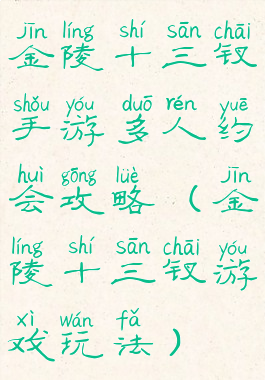 jīn líng shí sān chāi
金陵十三钗
shǒu yóu duō rén yuē
手游多人约
huì gōng lüè jīn
会攻略（金
líng shí sān chāi yóu
陵十三钗游
xì wán fǎ
戏玩法）